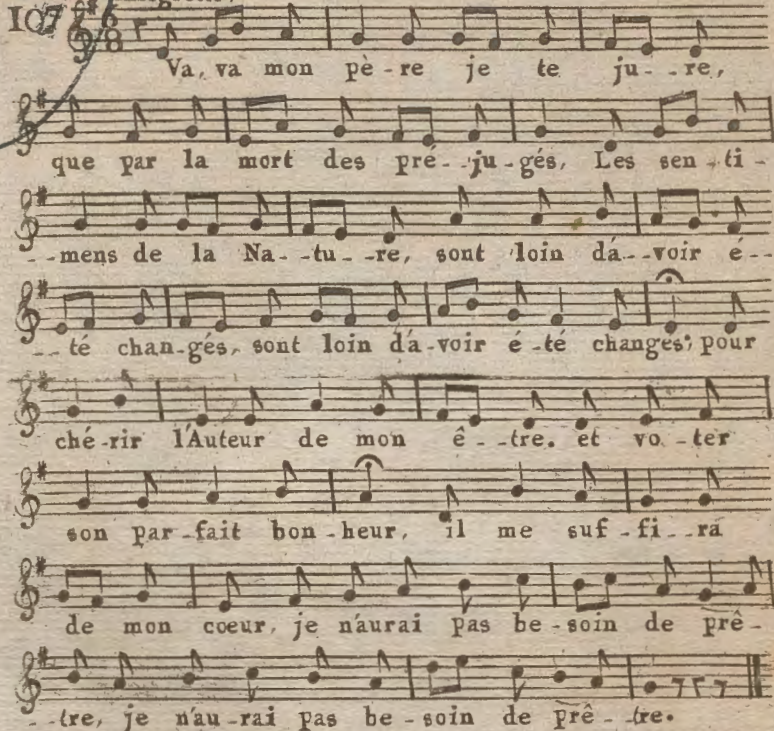 107
Va, va mon pè-re je te ju--re,
que par la mort des pré--ju-gés, Les sen-ti-
--mens de la Na--tu--re, sont loin dá--voir é--
--té chan-gés, sont loin dá-voir é-té changés; pour
ché-rir l'Auteur de mon ê--tre. et vo-ter
son par-fait bon-heur, il me suf-fi--ra
de mon coeur, je náurai pas be-soin de prê-
--tre, je náu-rai pas be-soin de prê-tre.